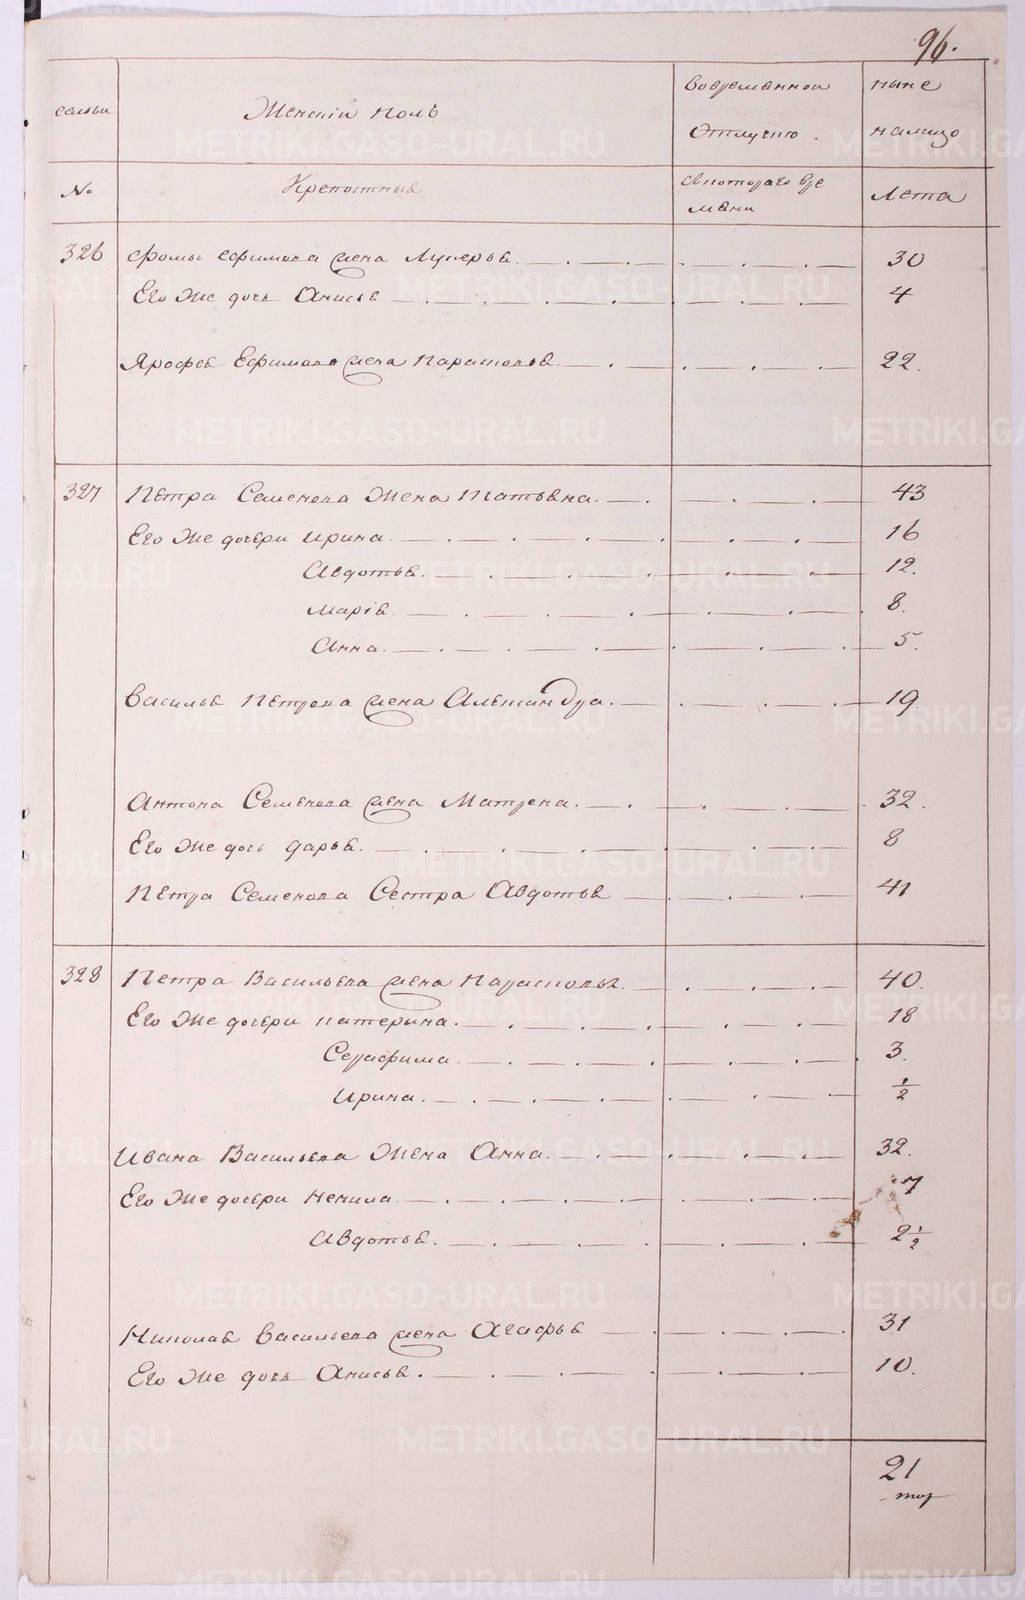 96.
семьи
Женскій полъ
Во временной
Отлучке.
ныне
налицо
№
Крепостныя
Скотораго вре
мени
Лета
326 Фомы Ефимова жена Лукерья. 30
Его же дочь Анисья 4
Ярофея Ефимова жена Парасковья. 22.
327 Петра Семенова Жена Татьяна. 43
Его же дочери Ирина. 16
Авдотья. 12.
Марія. 8.
Анна. 5.
Василья Петрова жена Александра. 19.
Антона Семенова жена Матрена. 32.
Его же дочь Дарья. 8
Петра Семенова Сестра Авдотья 41
328 Петра Васильева жена Парасковья. 40.
Его же дочери Катерина. 18
Серафима. 3.
Ирина. 1/2
Ивана Васильева Жена Анна. 32.
Его же дочери Ненила. 7
Авдотья. 2 1/2
Николая Васильева жена Агафья 31
Его же дочь Анисья. 10.
21
METRIKI.GASO-URAL.RU